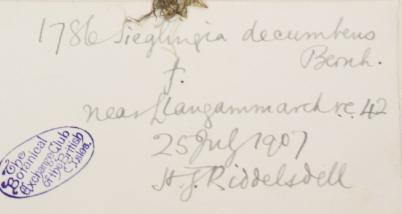 1786 Sieglingia decumbens
Bernh.
f.
near Llangammarch v.c. 42
25 July 1907
H. J. Riddelsdell
The
Botanical
Exchange Club
of the British
Isles.